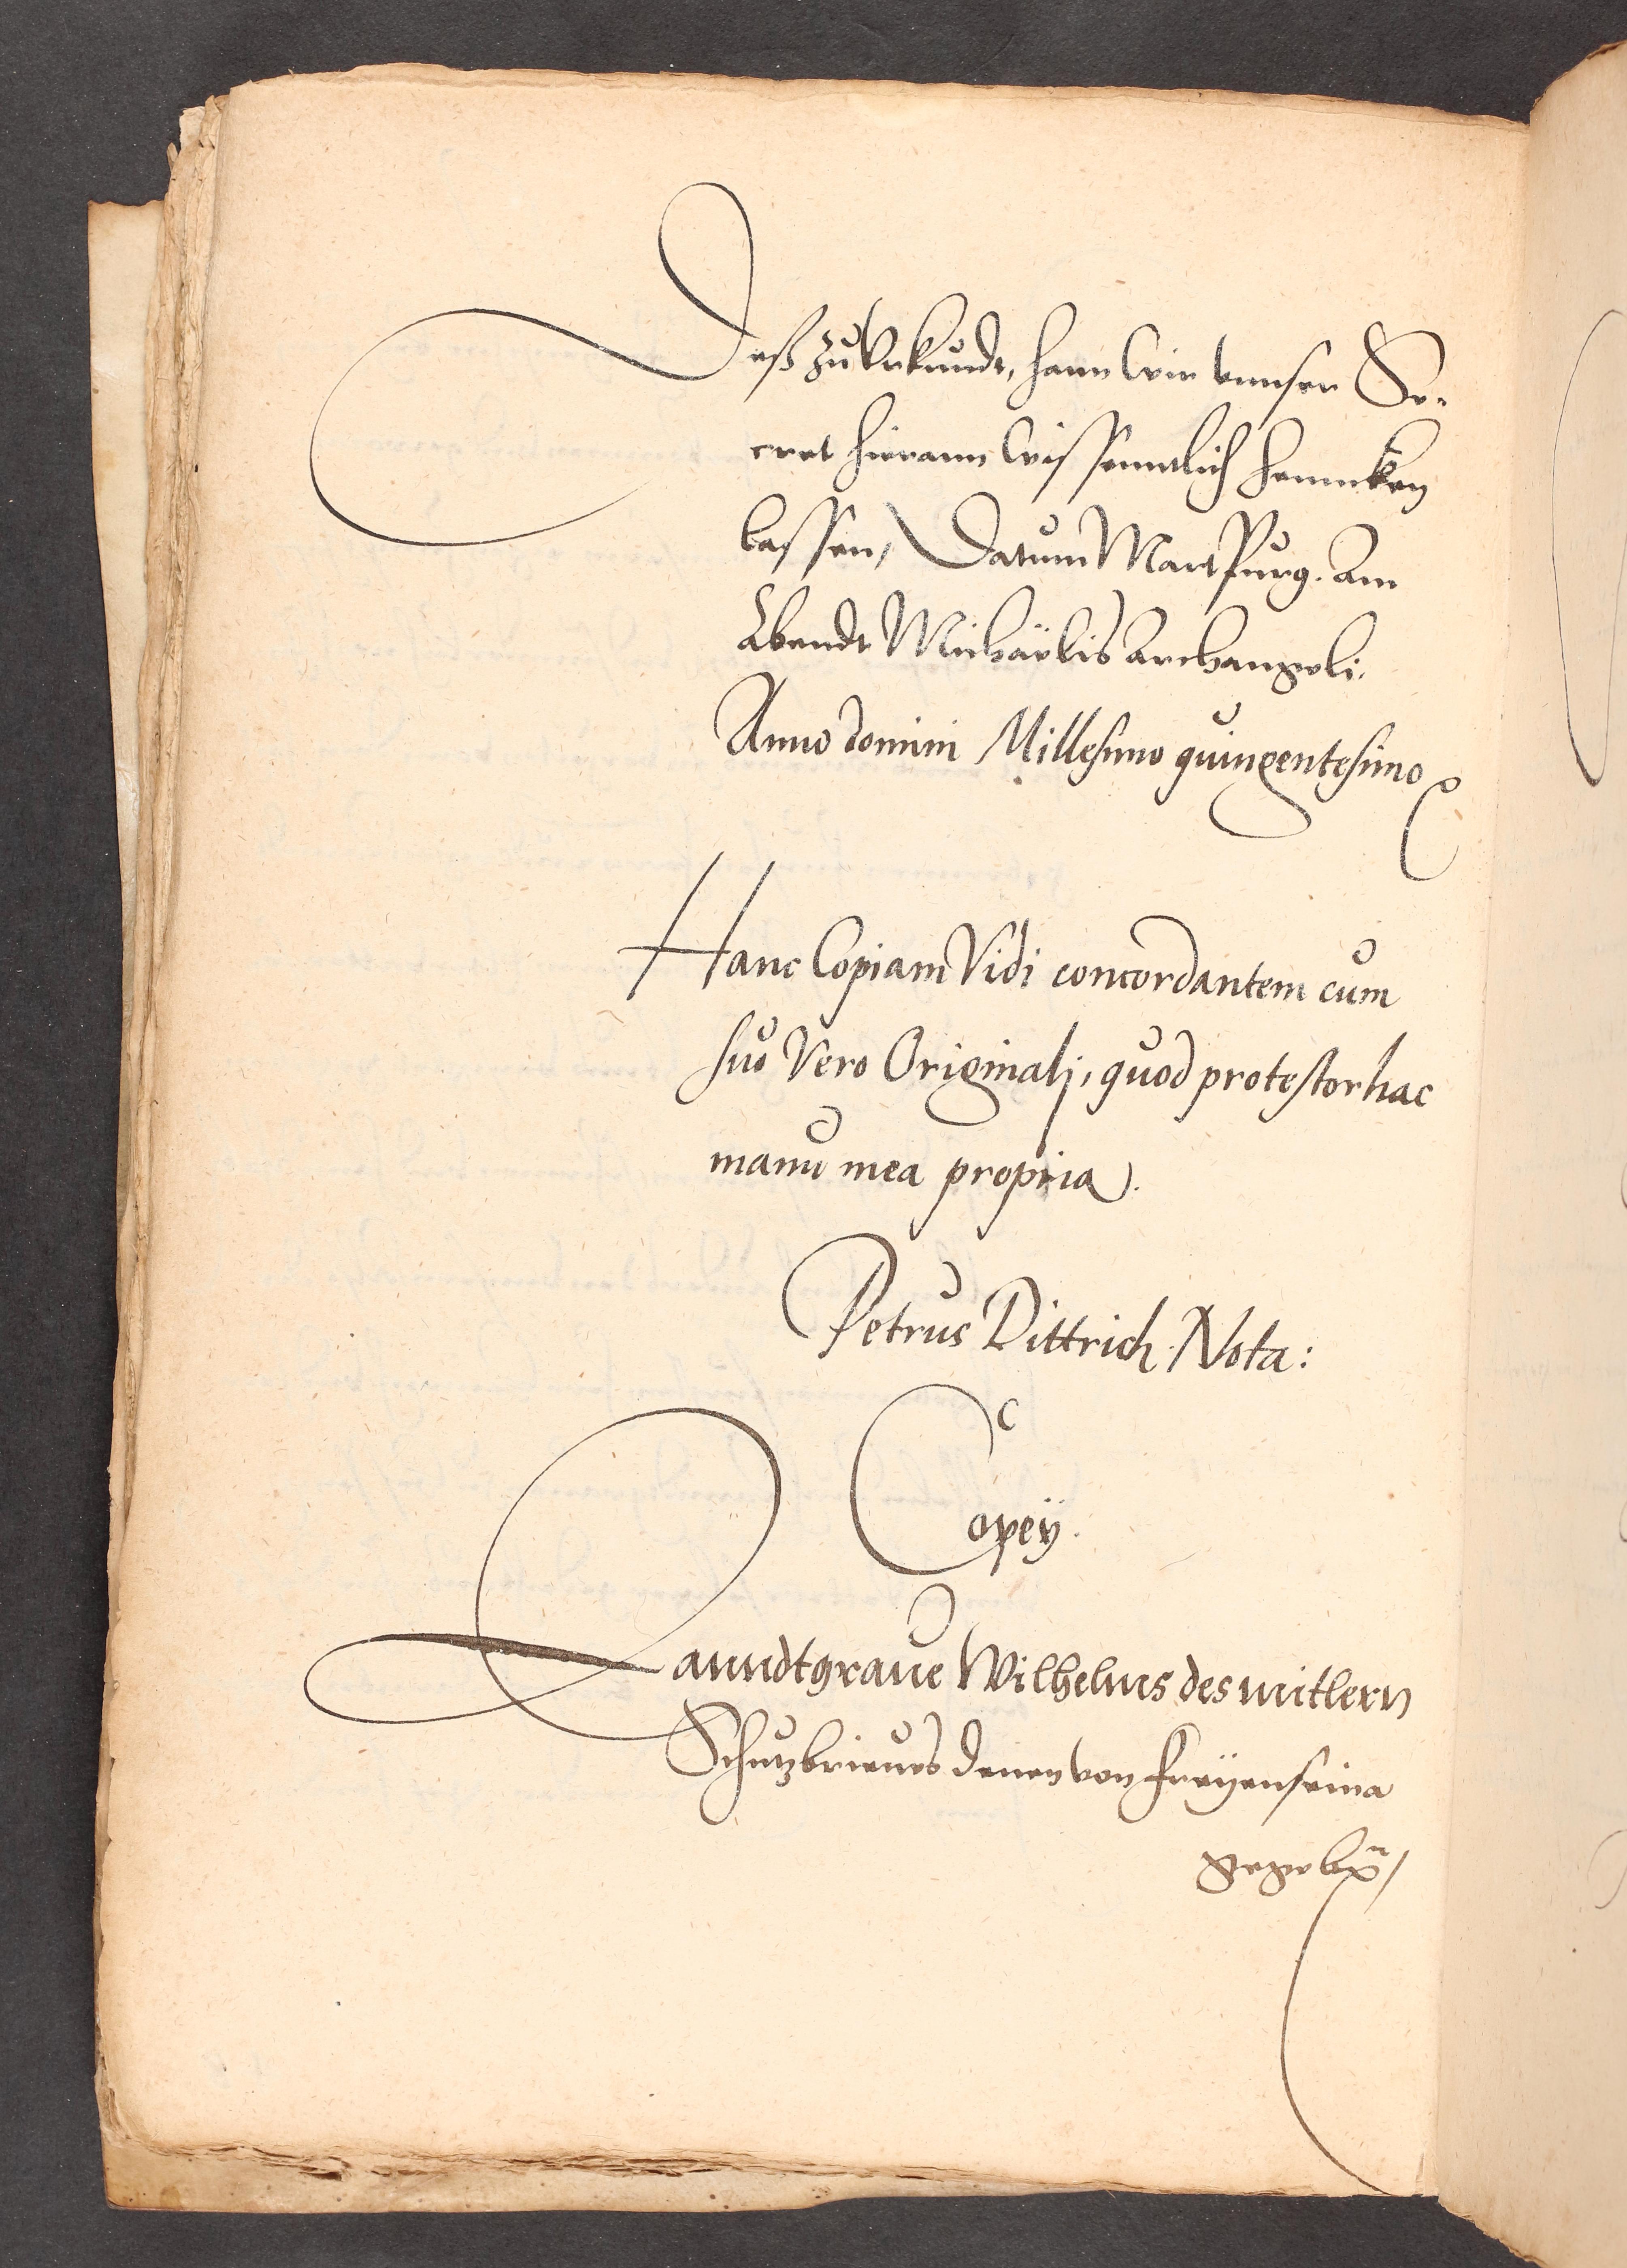 Deß zu Vrkundt, hann wir vnnser Se-
cret hieran wissenntlich henncken
lassen, Datum Martpurg. Am
Abendt Michaëlis Archangeli.
Anno domini Millesimo quingentesimo
Hanc Copiam Vidi concordantem cum
suo Vero Originalj, quod protestor hac
manu mea propria.
Petrus Dittrich. Nota:
Copey.
Lanndtgraue Wilhelms des mitlern
Schutzbrieues denen von Freyenseina
gegebn̄,